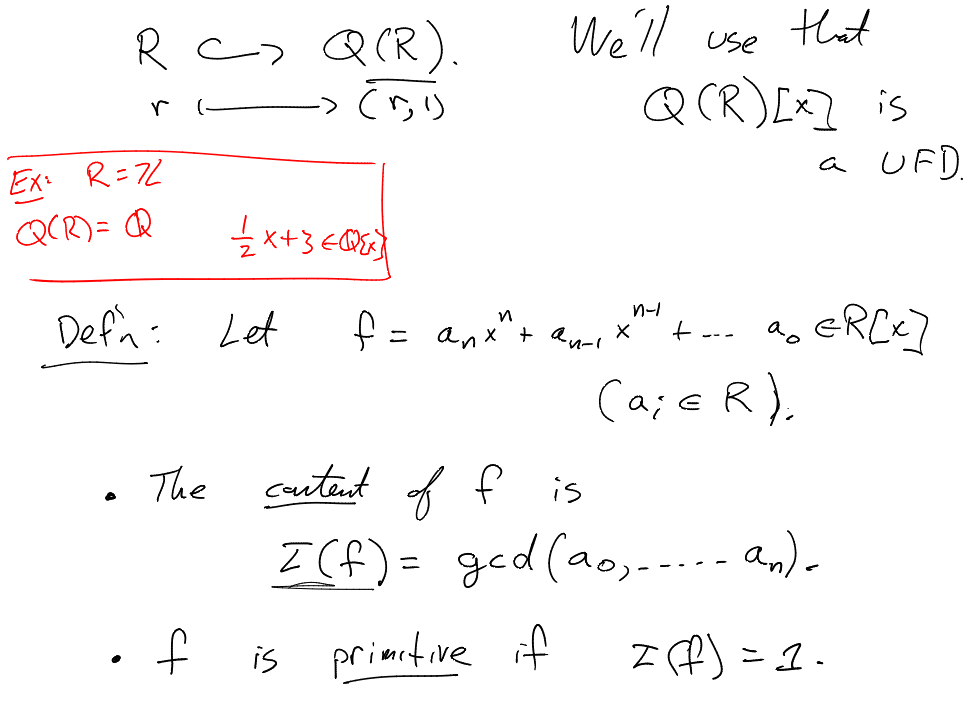 R ↪ Q(R).
r ⟼ (r,1)
We'll use that
Q(R)[x] is
a UFD.
Ex: R = ℤ
Q(R) = ℚ
1/2 x + 3 ∈ ℚ[x]
Def'n: Let f = aₙxⁿ + aₙ₋₁xⁿ⁻¹ + --- a₀ ∈ R[x]
(aᵢ ∈ R).
• The content of f is
I(f) = gcd(a₀, ..... aₙ).
• f is primitive if I(f) = 1.